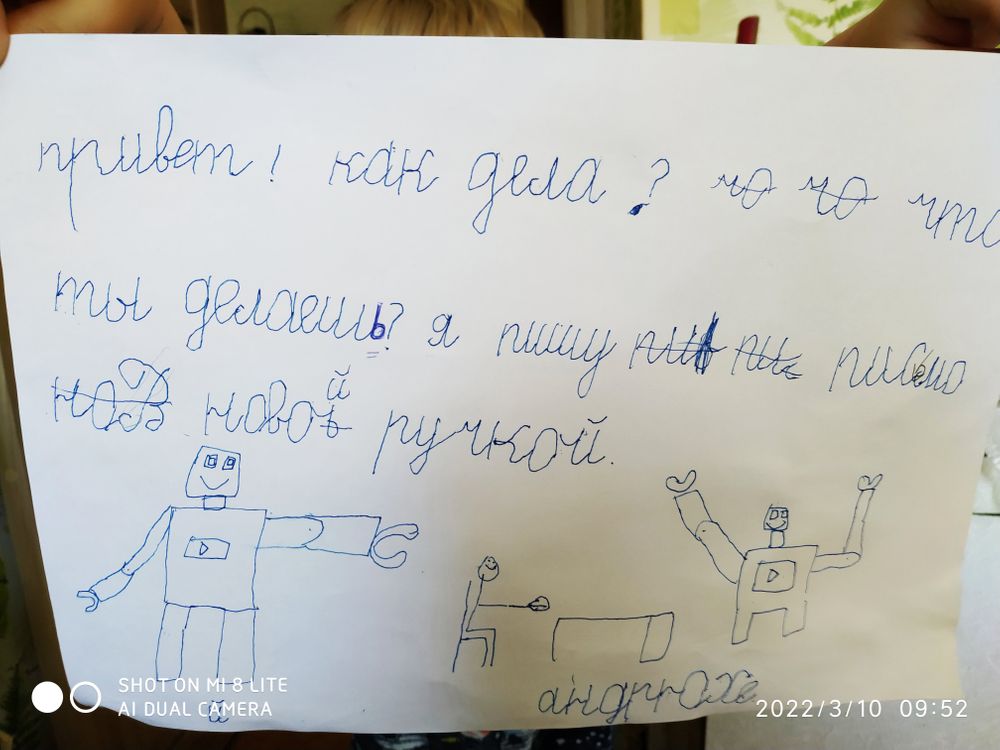 привет! как дела? чо чо что
ты делаешь? я пишу пив пис письмо
нов новой ручкой.
андрюхе
й
SHOT ON MI 8 LITE
AI DUAL CAMERA
2022/3/10 09:52